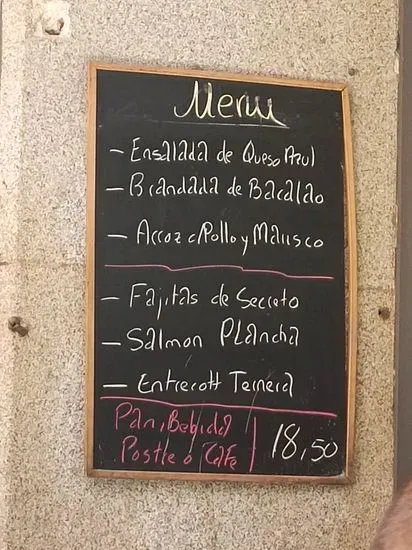 Menu
- Ensalada de Queso Azul
- Brandada de Bacalao
- Arroz c/Pollo y Marisco
- Fajitas de Secreto
- Salmon PLancha
- Entrecott Ternera
Pan, Bebida
Postre o Cafe
18,50